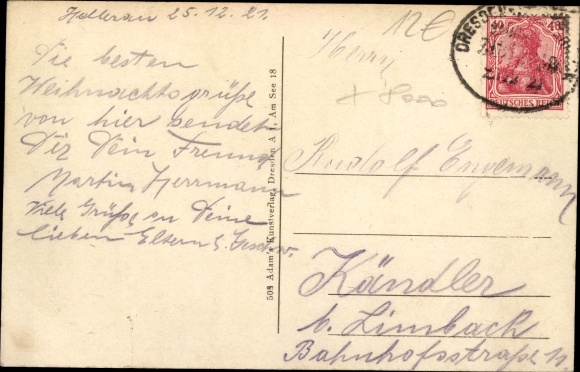 Hellerau 25.12.21.
Die besten
Weihnachtsgrüße
von hier sendet
Dir Dein Freund
Martin Herrmann
Viele Grüße an Deine
lieben Eltern & Geschw.
508 Adam's Kunstverlag, Dresden A 1, Am See 18
12€
Herrn
Rudolf Engemann
Kändler
b. Limbach
Bahnhofsstraße 11
DRESDEN
10
DEUTSCHES REICH